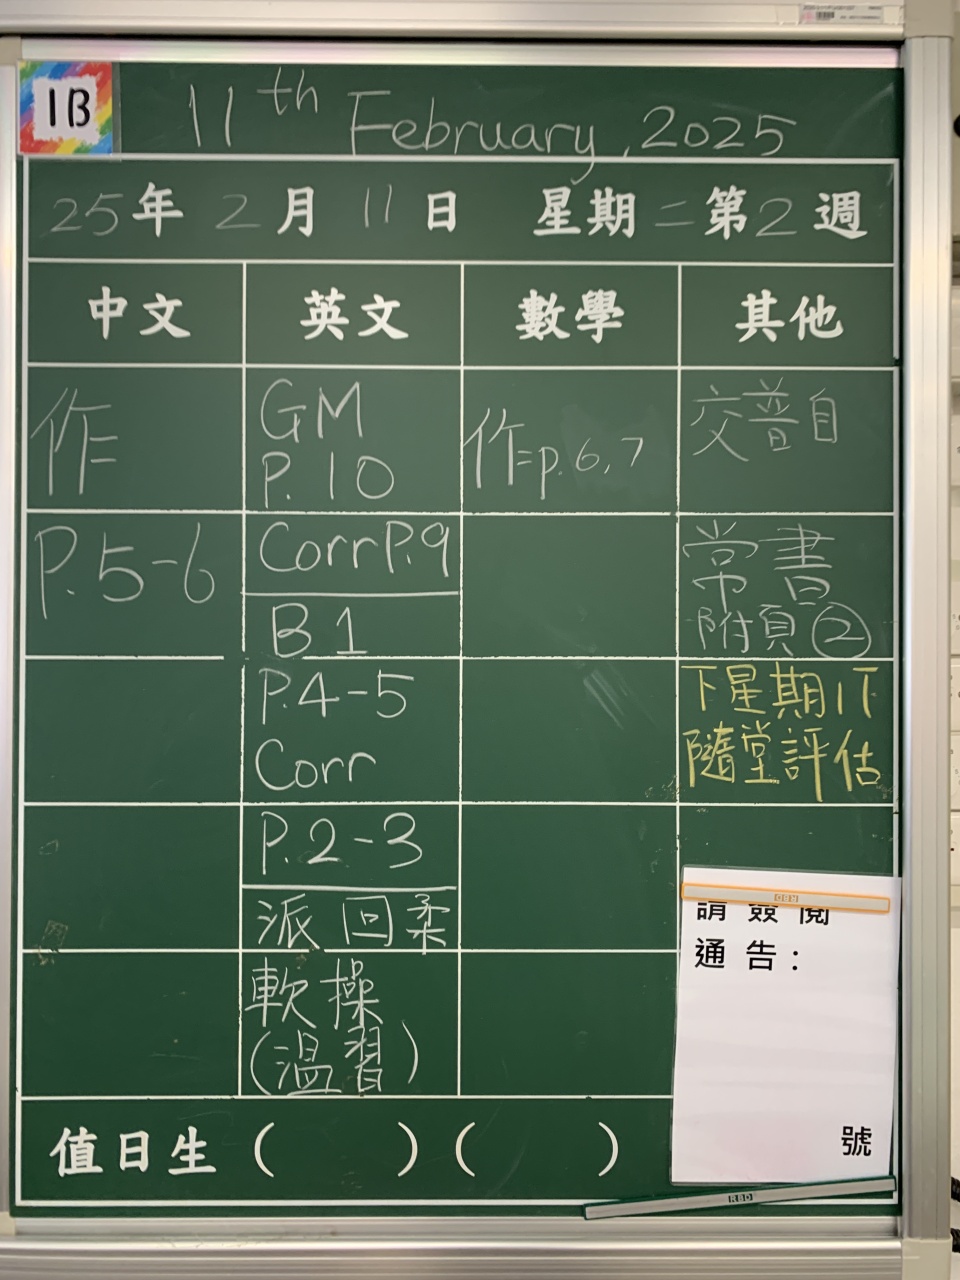 1B
11th February, 2025
25年 2月 11日 星期二 第2週
中文 英文 數學 其他
作
P.5-6
GM
P.10
Corr P.9
B1
P.4-5
Corr
P.2-3
派回柔
軟操
(溫習)
作 p.6,7
交普自
常書
附頁②
下星期IT
隨堂評估
請簽閱
通告:
號
值日生 ( ) ( )
RBD